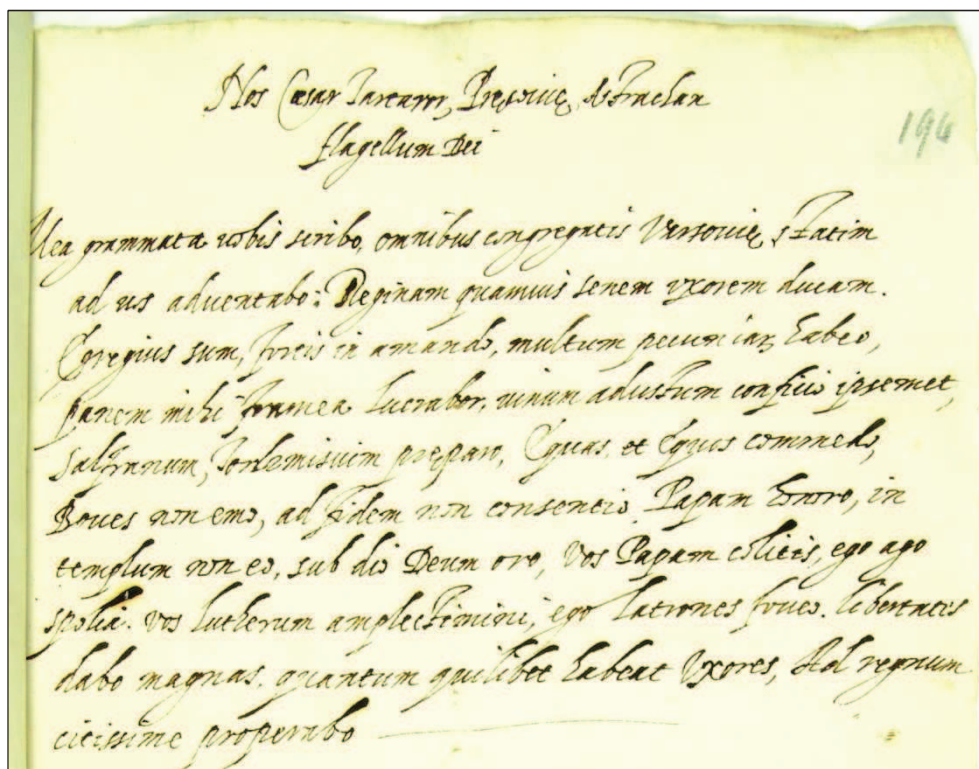 Nos Cæsar Tartaror, Astrachan
flagellum Dei
196
Mea grammata uobis scribo, omnibus congregatis Varsouię, statim
ad uos aduentabo: Reginam quamuis senem uxorem ducam.
Egregius sum, fortis in amando, multum pecuniar, habeo,
panem mihi framea lucrabor, uinum adustum conficio ipsemet,
pręparo, Equas et Equos commedo,
Boues non emo, ad fidem non consentio. Papam honoro, in
templum non eo, sub dio Deum oro, Vos Papam colitis, ego ago
spolia. Vos Lutherum amplectimini, ego latrones foueo. libertates
dabo magnas. quantum quilibet habeat Vxores, Ad regnum
citissime properabo